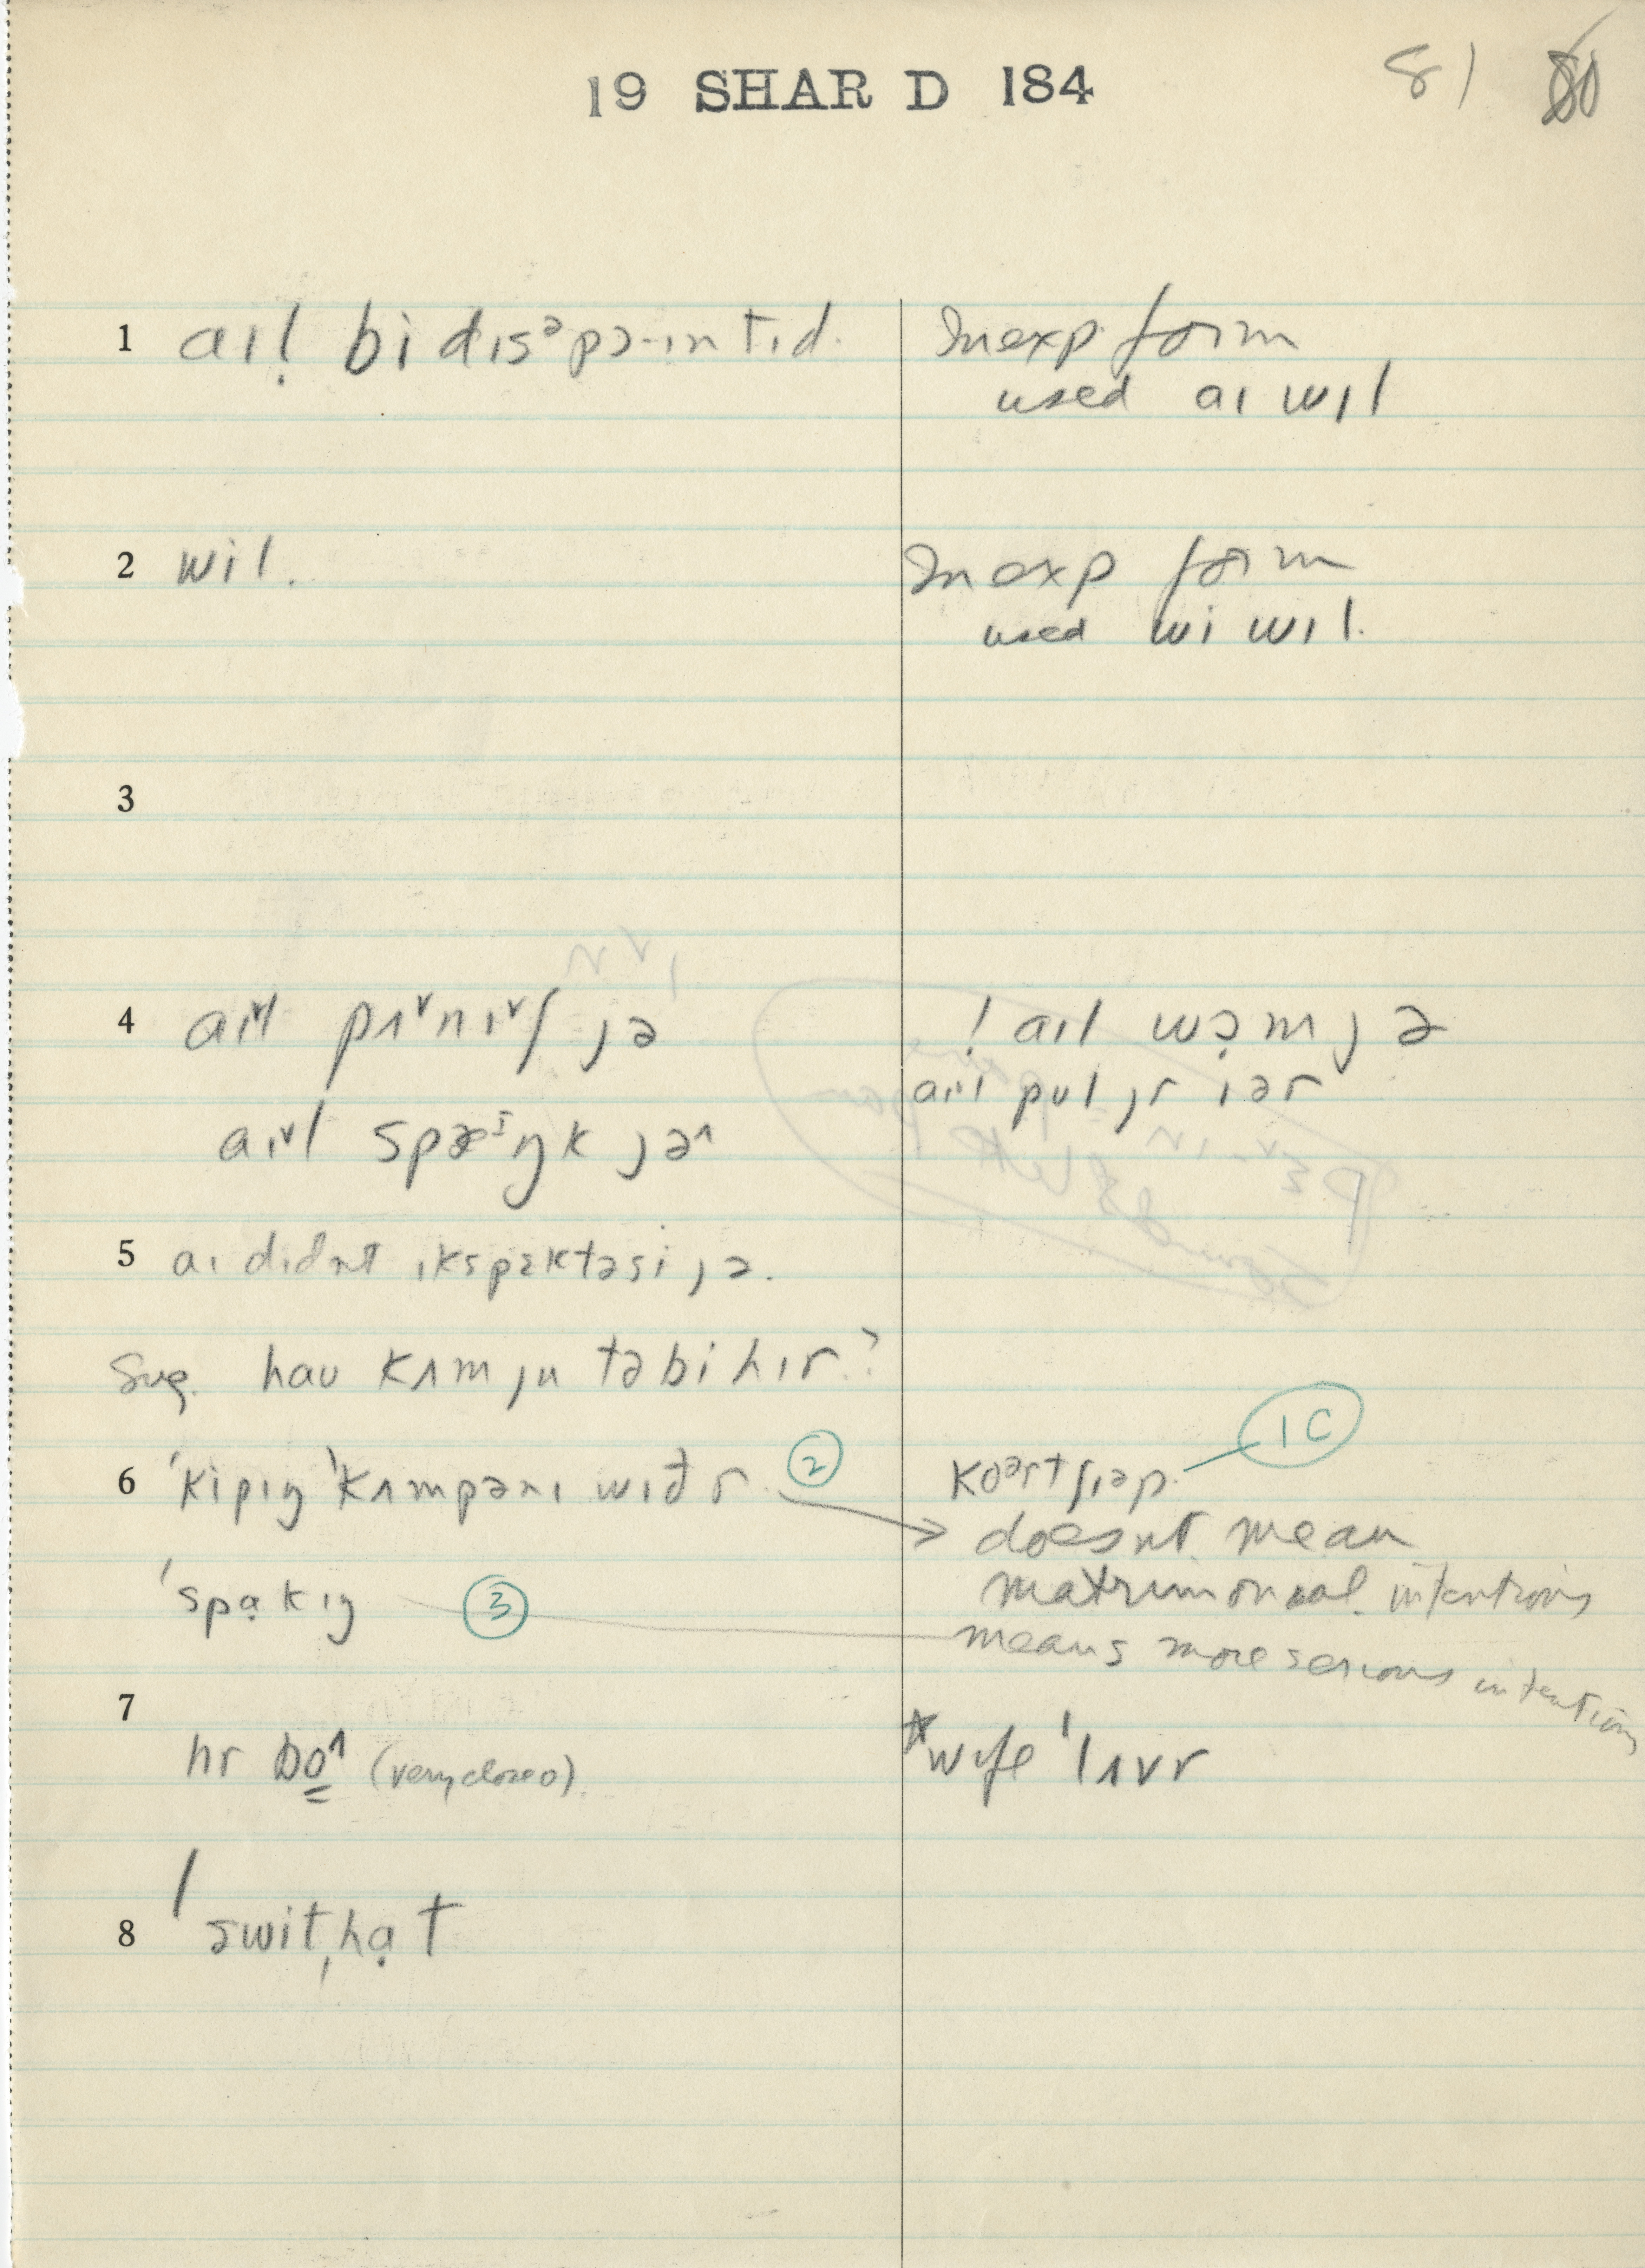 19 SHAR D 184
81
1 aɪḷ bi dɪsᵊpɔ-ɪntɪd.
Inexp form
used aɪ wɪl
2 wil.
Inexp form
used wi wɪl.
3
4 aɪᵛl pʌᵛnɪᵛʃ jə
! aɪl wɔ̣m jə
aɪᵛl spæᶦŋk jəʌ
aɪl pul jr iər
5 aɪ dɪdnt ɪkspɛktəsi jə.
Sug. hau kʌm ju təbi hɪr?
6 ˈkipɪŋ ˈkʌmpənɪ wɪð r. ②
koᵊrtʃɪəp. 1C
doesnt mean
matrimonial intentions
ˈspạkɪŋ ③
means more serious intentions
7 hr bo̳^ (very close o)
*wife ˈlʌvr
8 ˈswitˌhạt